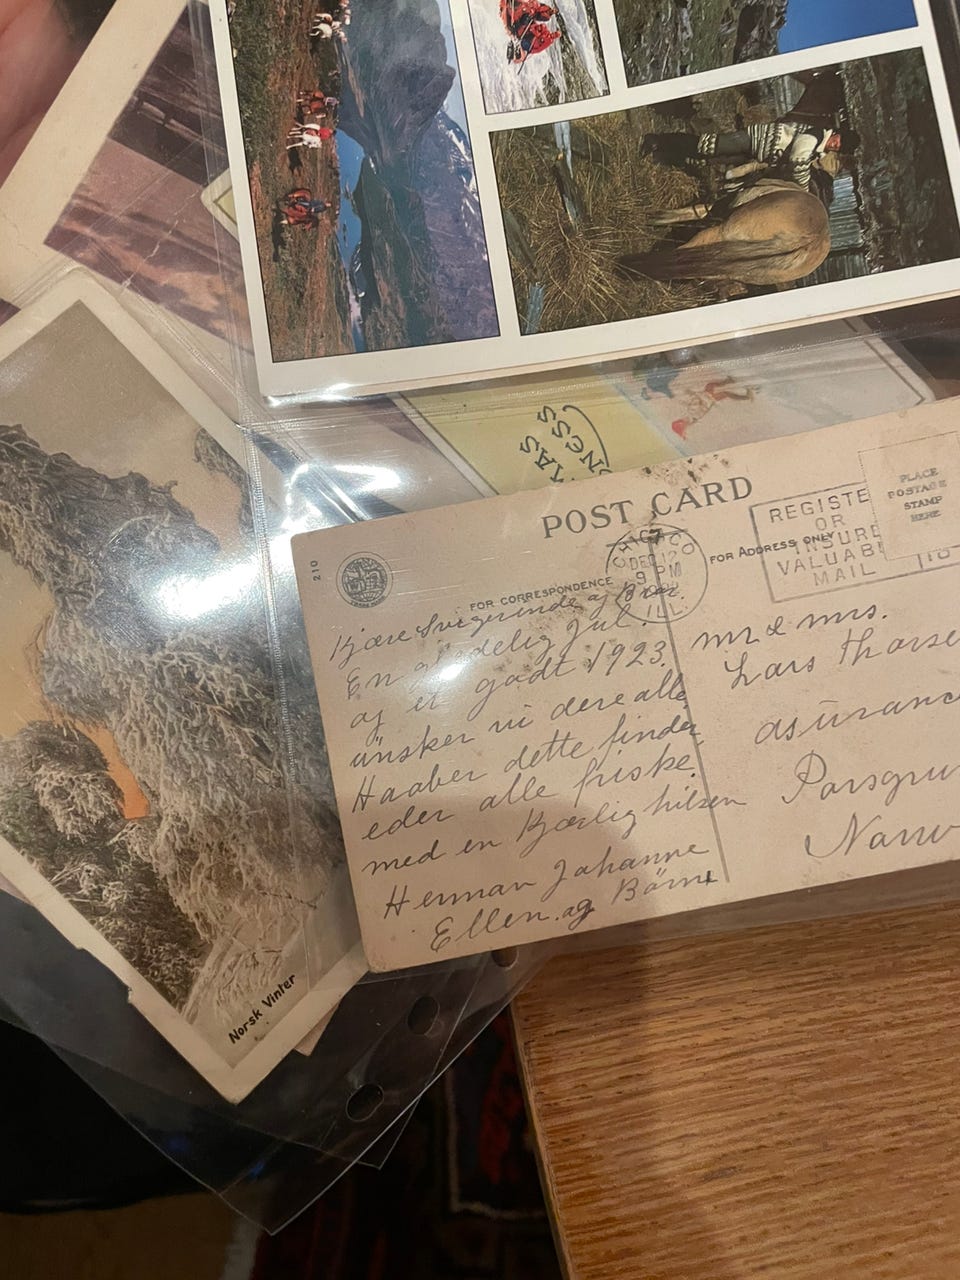 MAS
NESS
POST CARD
210
FOR CORRESPONDENCE
FOR ADDRESS ONLY
CHICAGO
DEC 12
9 PM
ILL.
REGISTE
OR
INSURE
VALUABL
MAIL
PLACE
POSTAGE
STAMP
HERE
Kjære Svigerinde og Bror.
En glædelig Jul
og et godt 1923.
ünsker vi dere alle
Haaber dette finder
eder alle friske.
med en Kjærlig hilsen
Herman Johanne
Ellen. og Börne
mr & mrs.
Lars Thorse
asüranc
Porsgru
Norw
Norsk Vinter